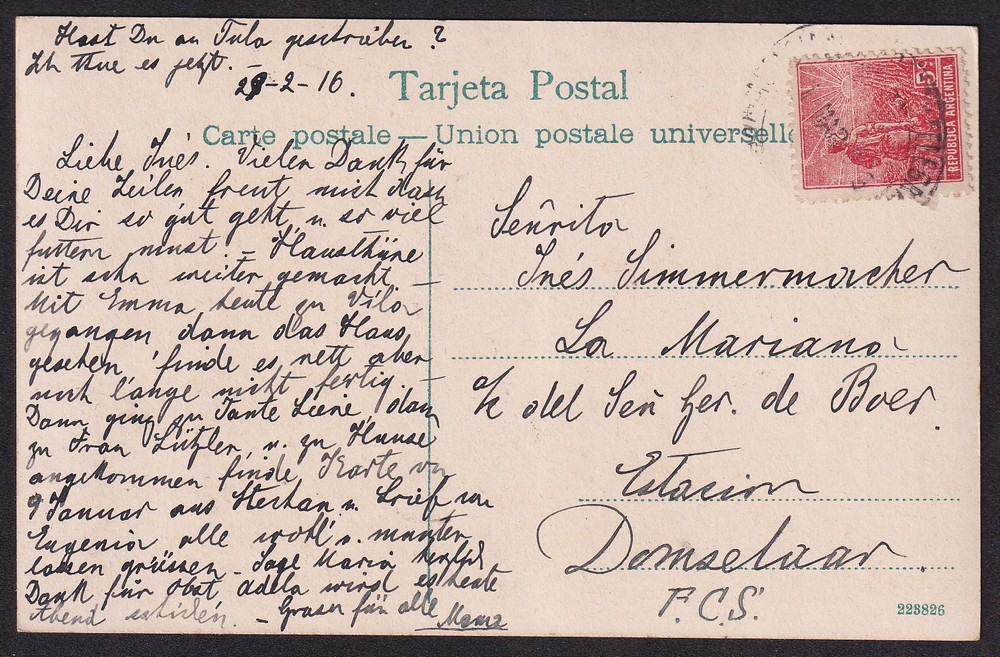 Hast Du an Tula geschrieben?
Ich thue es jetzt. –
29-2-16.
Tarjeta Postal
Carte postale — Union postale universelle
5
REPUBLICA ARGENTINA
Liebe Inés. Vielen Dank für
Deine Zeilen freut mich dass
es Dir so gut geht u. so viel
futtern musst – Hausthüre
ist schn weiter gemacht –
Mit Emma heute zu Vila
gegangen dann das Haus
gesehen, finde es nett aber
noch länge nicht fertig. –
Dann ging zu Tante Liene, dann
zu Frau Lützler, u. zu Hause
angekommen finde Karte von
9 Januar aus u. Brief von
Eugenia alle wohl u. munter
lassen grüssen – Sage Maria herzlich
Dank für Obst Adela wird es heute
Abend schicken. – Grüsse für alle
Mama
Señrita
Inés Simmermacher
La Mariana
c/o del Señ Ger. de Boer
Estacion
Domselaar.
F.C.S.
223826